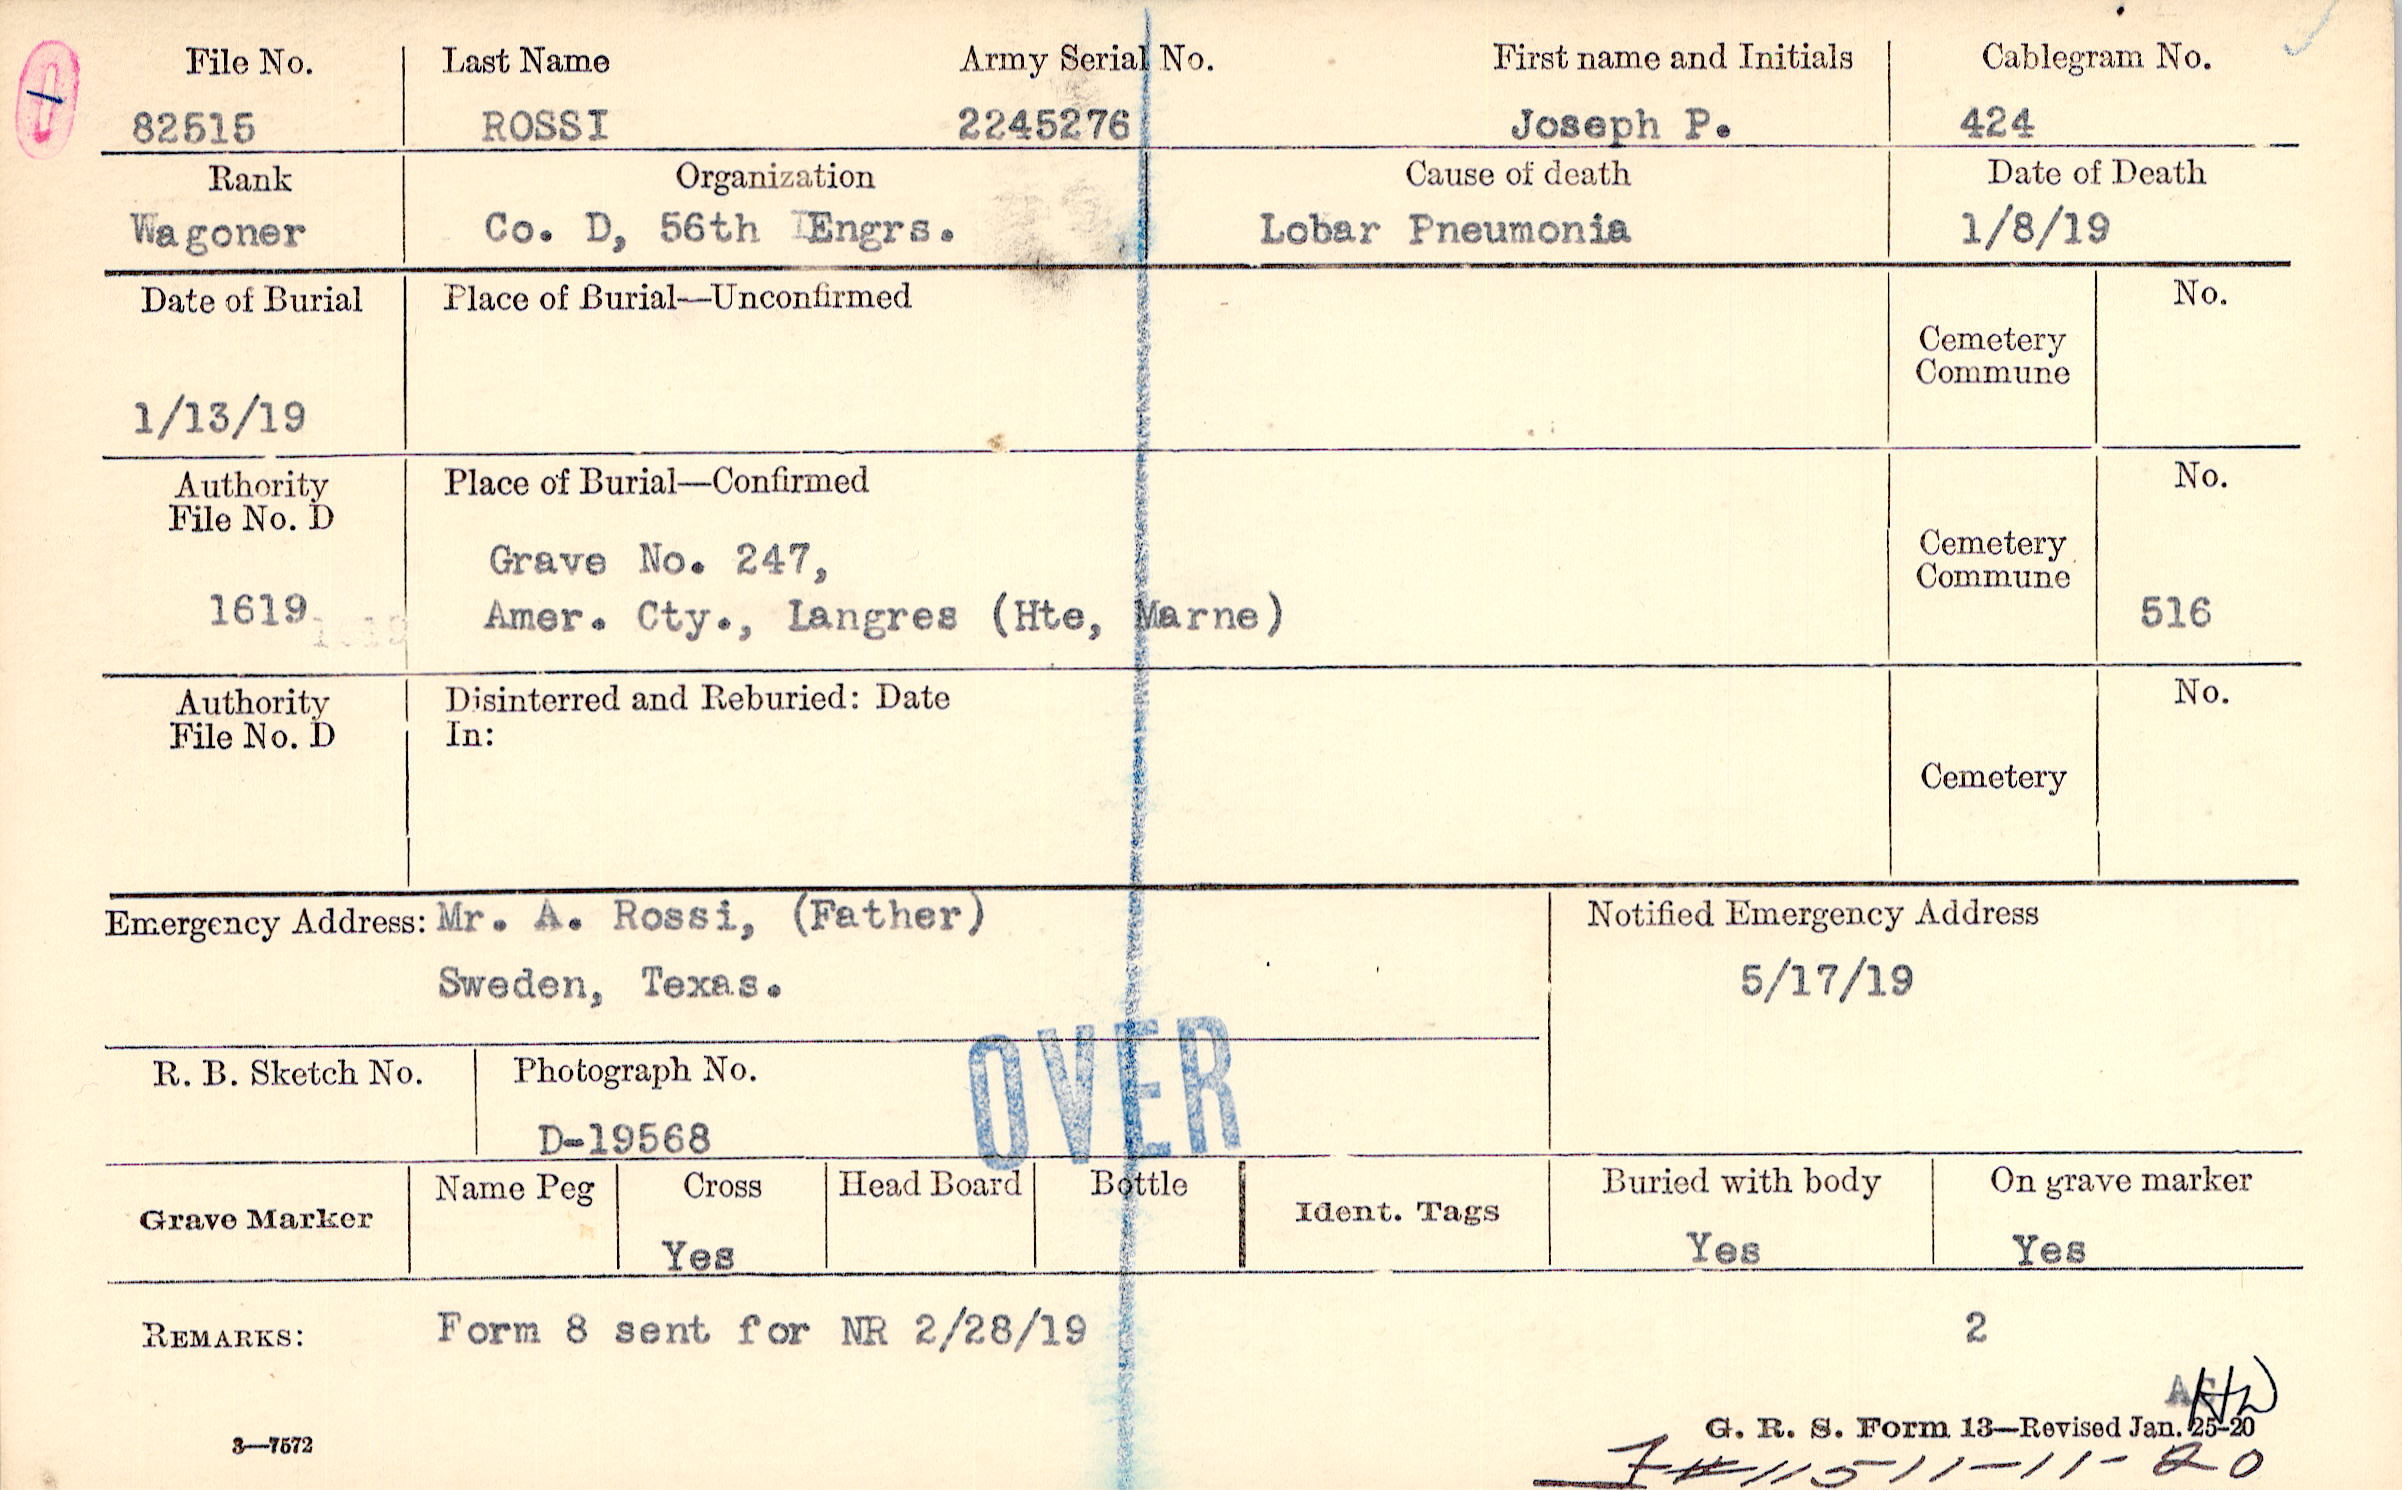 File No. Last Name Army Serial No. First name and Initials Cablegram No.
82515 ROSSI 2245276 Joseph P. 424
Rank Organization Cause of death Date of Death
Wagoner Co. D, 56th Engrs. Lobar Pneumonia 1/8/19
Date of Burial Place of Burial—Unconfirmed No.
Cemetery
Commune
1/13/19
Authority Place of Burial—Confirmed No.
File No. D
Grave No. 247, Cemetery
Commune
1619 Amer. Cty., Langres (Hte, Marne) 516
Authority Disinterred and Reburied: Date No.
File No. D In:
Cemetery
Emergency Address: Mr. A. Rossi, (Father) Notified Emergency Address
Sweden, Texas. 5/17/19
R. B. Sketch No. Photograph No. OVER
D-19568
Grave Marker Name Peg Cross Head Board Bottle Ident. Tags Buried with body On grave marker
Yes Yes Yes
REMARKS: Form 8 sent for NR 2/28/19 2
3—7572 G. R. S. Form 13—Revised Jan. 25-20
11-11-20